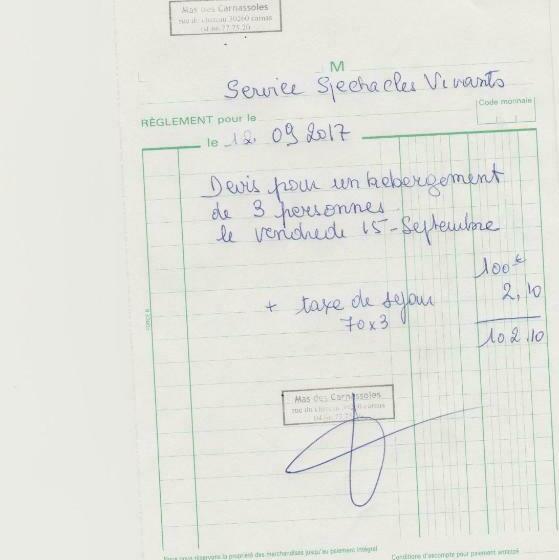 Mas des Carnassoles
rue du château 30260 carnas
04.66.77.75.20
M
Service Spectacles Vivants
Code monnaie
RÈGLEMENT pour le
le 12.09 2017
Devis pour un hébergement
de 3 personnes
le vendredi 15-Septembre
100€
+ taxe de sejour 2,10
70x3
102.10
Mas des Carnassoles
rue du château 30260 carnas
Nous nous réservons la propriété des marchandises jusqu'au paiement intégral
Conditions d'escompte pour paiement anticipé